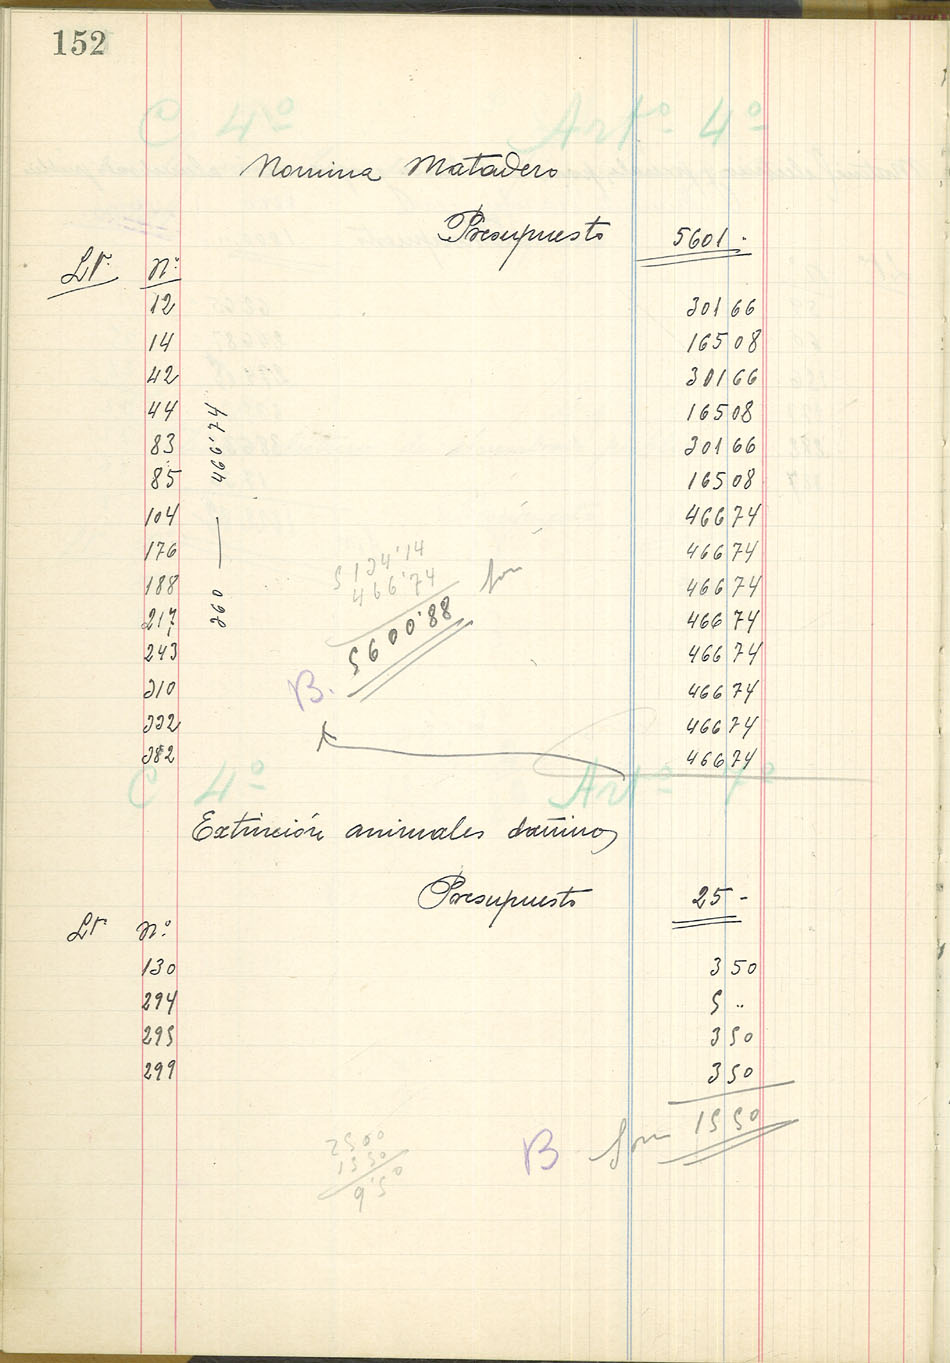 152
C 4º Artº 4º
Nomina Matadero
Presupuesto 5601.-
Lr. Nº
12 301 66
14 165 08
42 301 66
44 165 08
83 301 66
85 165 08
104 466 74
176 466 74
188 466 74
217 466 74
243 466 74
310 466 74
332 466 74
382 466 74
260 — 466'74
5134'14
466'74
5600'88
B.
C 4º Artº 7º
Extinción animales dañinos
Presupuesto 25 -
Lr. Nº
130 3 50
294 5 ..
295 3 50
299 3 50
B 15 50
2500
1550
9'50